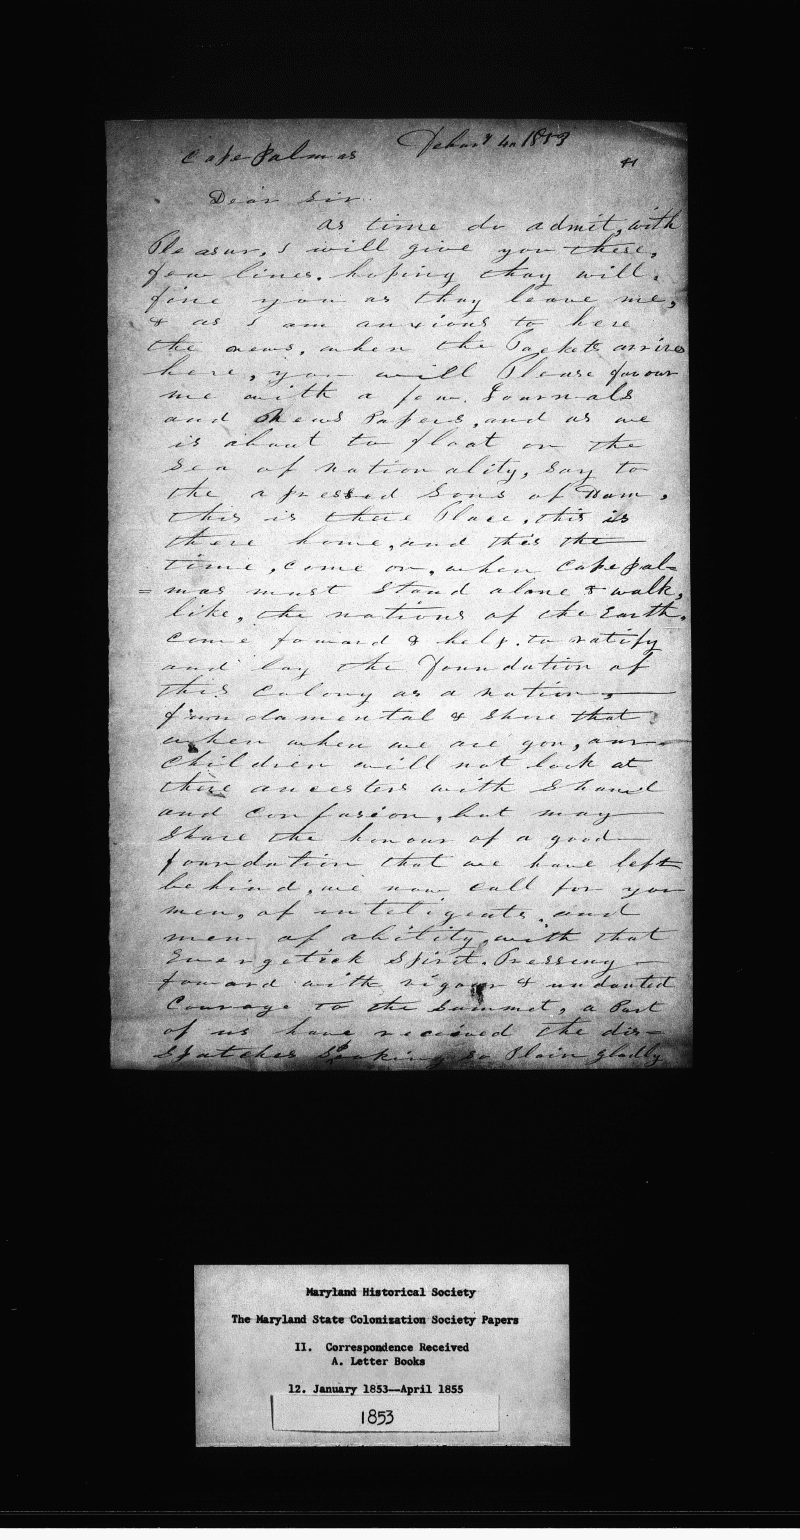 Cape Palmas Febary 4n 1853
41
Dear Sir
as time do admit, with
Pleasur, I will give you these,
few lines. hoping thay will,
fine you as thay leave me,
& as I am anxious to here
the news, when the Packets arrive
here, you will Please favour
me with a few Journals
and News Papers, and as we
is about to float on the
Sea of nationality, Say to
the apressed Sons of Ham,
this is there Place, this is
there home, and this the
time, come on, when Cape Pal-
=mas must Stand alone & walk,
like, the nations of the Earth,
come foward & help to ratify
and lay the Foundation of
this Colony as a nation,
fundamental & Shore that
when when we are gon, our
Children will not look at
there ancesters with Shame
and confusion, but may
Share the honour of a good
foundation that we have left
behind, we now call for you
men, of inteligents, and
men of ability, with that
Energetick Spirit. Pressing
foward with vigour & undanted
Courage to the Summet, a Part
of us have received the dis-
Spatches Speaking so Plain gladly
Maryland Historical Society
The Maryland State Colonization Society Papers
II. Correspondence Received
A. Letter Books
12. January 1853--April 1855
1853